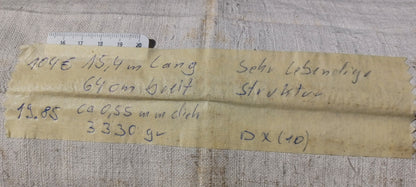 16 17 18 19 20
104€ 15,4 m lang
64 cm breit
19.85 ca 0,55 mm dick
3330 gr
Sehr lebendige
Struktur
DX (10)